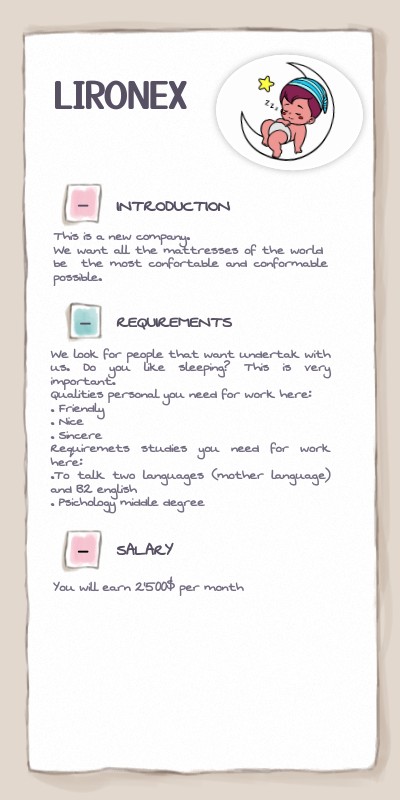 LIRONEX
zzz
INTRODUCTION
This is a new company.
We want all the mattresses of the world
be the most confortable and conformable
possible.
REQUIREMENTS
We look for people that want undertak with
us. Do you like sleeping? This is very
important.
Qualities personal you need for work here:
. Friendly
. Nice
. Sincere
Requiremets studies you need for work
here:
.To talk two languages (mother language)
and B2 english
. Psichology middle degree
SALARY
You will earn 2'500$ per month